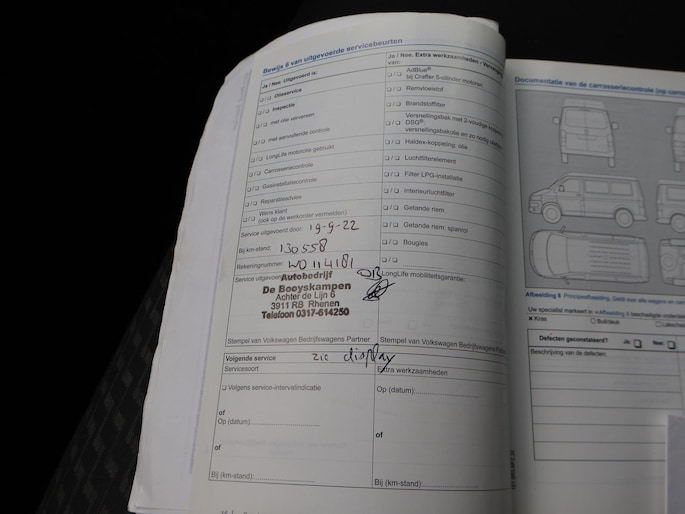 Bewijs 6 van uitgevoerde servicebeurten
Ja / Nee, Uitgevoerd is:
❏/❏ Olieservice
❏/❏ Inspectie
❏/❏ met olie verversen
❏/❏ met aanvullende controle
❏/❏ LongLife motorolie gebruikt
❏/❏ Carrosseriecontrole
❏/❏ Gasinstallatiecontrole
❏/❏ Reparatieadvies
❏/❏ Wens klant
(ook op de werkorder vermelden)
Service uitgevoerd door: 19-9-22
Bij km-stand: 130558
Rekeningnummer: WO 114181
Service uitgevoerd
Autobedrijf
De Booyskampen
Achter de Lijn 6
3911 RB Rhenen
Telefoon 0317-614250
Stempel van Volkswagen Bedrijfswagens Partner
Ja / Nee, Extra werkzaamheden -
van:
❏/❏ AdBlue®
bij Crafter 5-cilinder motoren
❏/❏ Remvloeistof
❏/❏ Brandstoffilter
Versnellingsbak met 2-voudige
❏/❏ DSG®:
versnellingsbakolie en zo nodig
❏/❏ Haldex-koppeling: olie
❏/❏ Luchtfilterelement
❏/❏ Filter LPG-installatie
❏/❏ Interieurluchtfilter
❏/❏ Getande riem
❏/❏ Getande riem: spanrol
❏/❏ Bougies
❏/❏
LongLife mobiliteitsgarantie:
Stempel van Volkswagen Bedrijfswagens Partner
Volgende service zie display
Servicesoort
❏ Volgens service-intervalindicatie
of
Op (datum):
of
Bij (km-stand):
Extra werkzaamheden
Op (datum):
of
Bij (km-stand):
Documentatie van de carrosseriecontrole (op
Afbeelding 6 Principeafbeelding. Geldt voor alle wagens en
Uw specialist markeert in »Afbeelding 6 beschadigde
× Kras ○ Buil/deuk □
Defecten geconstateerd? Ja: ❏ Nee: ❏
Beschrijving van de defecten: